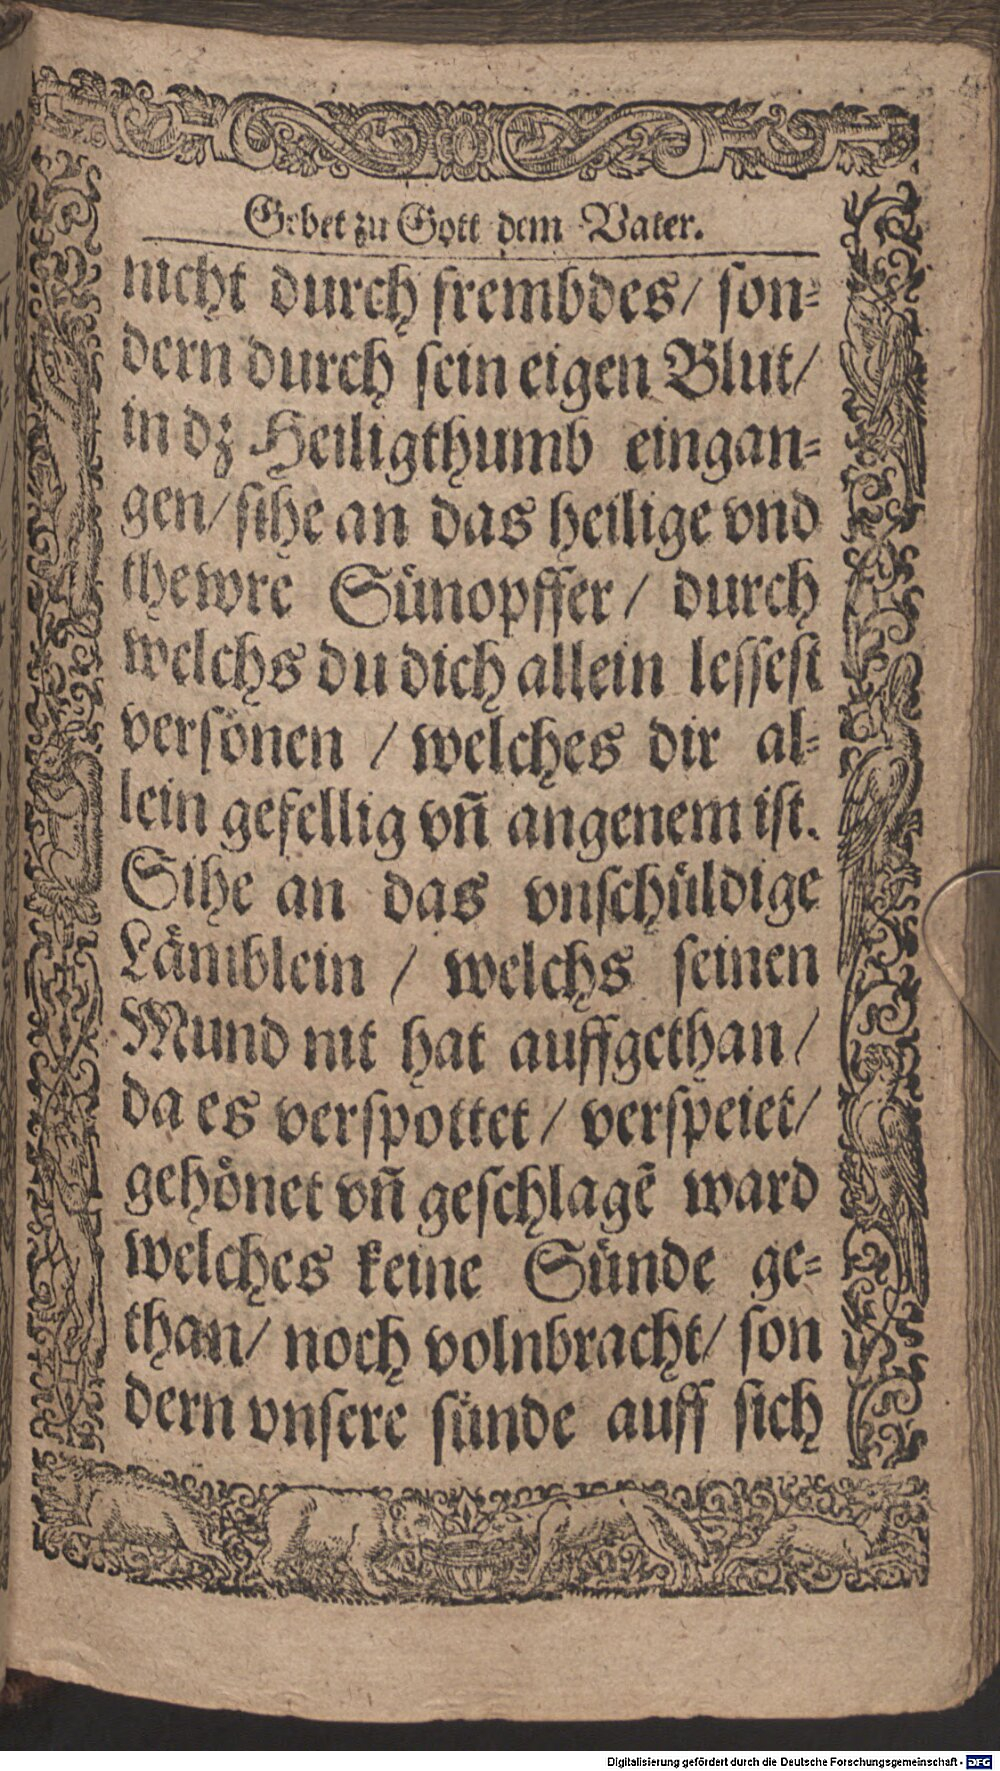 Gebet zu Gott dem Vater.
nicht durch frembdes/ son⸗
dern durch sein eigen Blut/
in dz Heiligthumb eingan⸗
gen/ sihe an das heilige vnd
thewre Sünopffer/ durch
welchs du dich allein lessest
versönen / welches dir al⸗
lein gefellig vñ angenem ist.
Sihe an das vnschüldige
Lämblein / welchs seinen
Mund nit hat auffgethan/
da es verspottet/ verspeiet/
gehönet vñ geschlagẽ ward
welches keine Sünde ge⸗
than/ noch volnbracht/ son
dern vnsere sünde auff sich
Digitalisierung gefördert durch die Deutsche Forschungsgemeinschaft - DFG